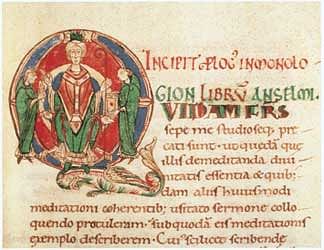 INCIPIT PLOG' IN MONOLO
GION LIBRV̄ ANSELMI.
QVIDAM FRS
sepe me studioseq; pre
cati sunt. ut quedā que
illis demeditanda diui
nitatis essentia & quib;
dam aliis huiusmodi
meditationi coherentib; usitato sermone collo
quendo protuleram. subquodā eis meditationis
exemplo describerem. Cui' scilicet scribende